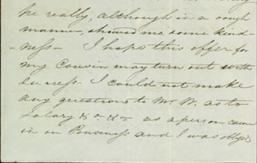 he really, although in a rough
manner, showed me some kind-
ness - I hope this offer for
my Cousin may turn out with
success. I could not make
any questions to Mr. W. as to
salary &c &c as a person came
in on Business and I was